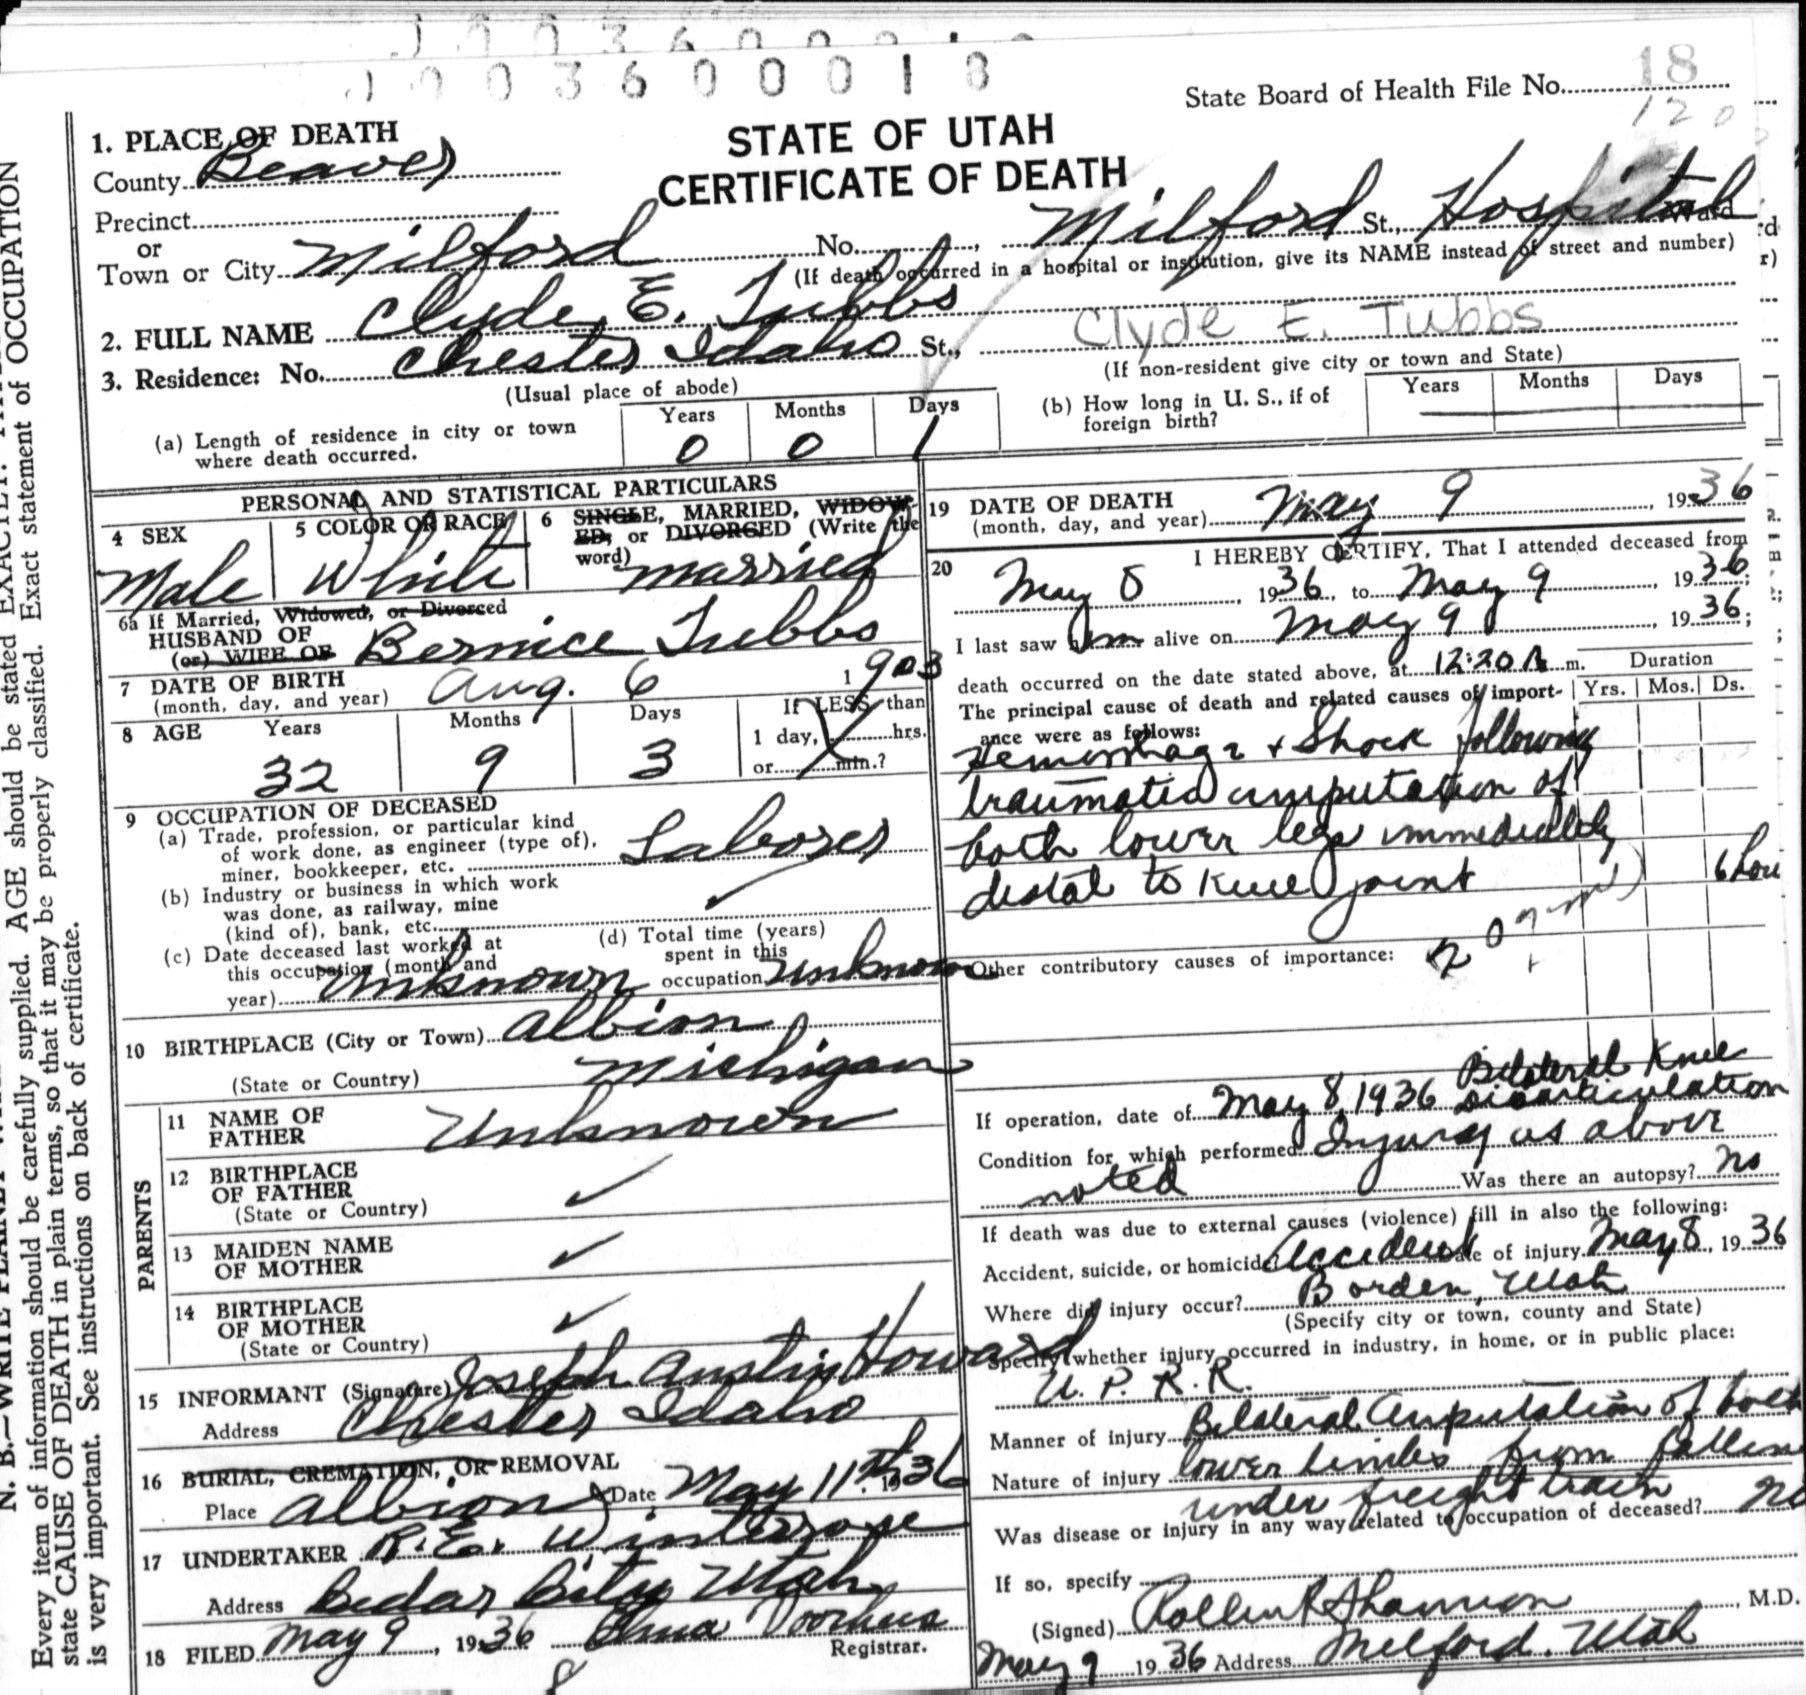 J 0 0 3 6 0 0 0 1 8
State Board of Health File No. 18
120
STATE OF UTAH
CERTIFICATE OF DEATH
1. PLACE OF DEATH
County Beaver
Precinct
or
Town or City Milford No. , Milford St., Hospital Ward
(If death occurred in a hospital or institution, give its NAME instead of street and number)
2. FULL NAME Clyde E. Tubbs Clyde E. Tubbs
3. Residence: No. Chester Idaho St.,
(Usual place of abode) (If non-resident give city or town and State)
(a) Length of residence in city or town where death occurred. Years 0 Months 0 Days 1
(b) How long in U. S., if of foreign birth? Years Months Days
PERSONAL AND STATISTICAL PARTICULARS
4 SEX Male
5 COLOR OR RACE White
6 SINGLE, MARRIED, WIDOWED, or DIVORCED (Write the word) married
6a If Married, Widowed, or Divorced
HUSBAND OF
(or) WIFE OF Bernice Tubbs
7 DATE OF BIRTH
(month, day, and year) Aug. 6 1903
8 AGE Years 32 Months 9 Days 3 If LESS than
1 day, hrs.
or min.?
9 OCCUPATION OF DECEASED
(a) Trade, profession, or particular kind
of work done, as engineer (type of),
miner, bookkeeper, etc. Laborer
(b) Industry or business in which work
was done, as railway, mine
(kind of), bank, etc.
(c) Date deceased last worked at
this occupation (month and
year) Unknown
(d) Total time (years)
spent in this
occupation unknown
10 BIRTHPLACE (City or Town) Albion
(State or Country) Michigan
PARENTS
11 NAME OF
FATHER Unknown
12 BIRTHPLACE
OF FATHER
(State or Country)
13 MAIDEN NAME
OF MOTHER
14 BIRTHPLACE
OF MOTHER
(State or Country)
15 INFORMANT (Signature) Joseph Austin Howard
Address Chester Idaho
16 BURIAL, CREMATION, OR REMOVAL
Place Albion Date May 11th 1936
17 UNDERTAKER R. E. Winterrose
Address Cedar City Utah
18 FILED May 9, 1936 Alma Voorhees
Registrar.
8
19 DATE OF DEATH
(month, day, and year) May 9, 1936
20 I HEREBY CERTIFY, That I attended deceased from
May 8, 1936, to May 9, 1936;
I last saw him alive on May 9, 1936;
death occurred on the date stated above, at 12:20 A m.
The principal cause of death and related causes of importance were as follows: Duration Yrs. Mos. Ds.
Hemorrhage & Shock following
traumatic amputation of
both lower legs immediately
distal to knee joint 6 hou
Other contributory causes of importance:
If operation, date of May 8, 1936 Bilateral Knee
disarticulation
Condition for which performed Injury as above
noted Was there an autopsy? no
If death was due to external causes (violence) fill in also the following:
Accident, suicide, or homicide? Accident Date of injury May 8, 1936
Where did injury occur? Borden, Utah
(Specify city or town, county and State)
Specify whether injury occurred in industry, in home, or in public place:
U. P. R. R.
Manner of injury Bilateral Amputation of both
Nature of injury lower limbs from fallin
under freight train
Was disease or injury in any way related to occupation of deceased? no
If so, specify
(Signed) Rollin R Shannon, M.D.
May 9 1936 Address Milford. Utah
Every item of information should be carefully supplied. AGE should be stated EXACTLY.
state CAUSE OF DEATH in plain terms, so that it may be properly classified. Exact statement of OCCUPATION
is very important. See instructions on back of certificate.